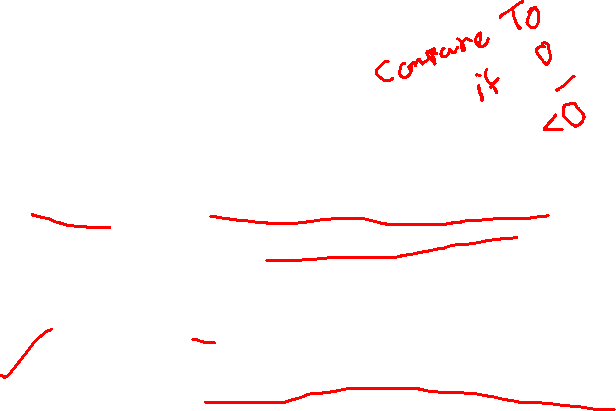 Compare To
if 0
<0